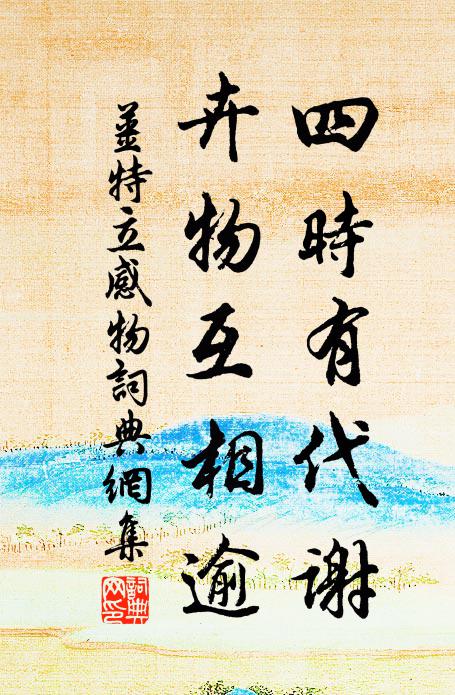 四時有代謝
卉物互相逾
姜特立感物詞典網集
詞典网印